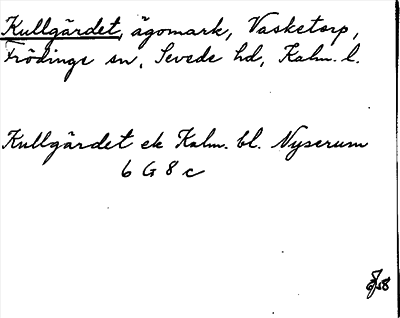 Kullgärdet, ägomark, Vasketorp,
Frödinge sn, Sevede hd, Kalm. l.
Kullgärdet ek Kalm. bl. Nyserum
6 G 8 c